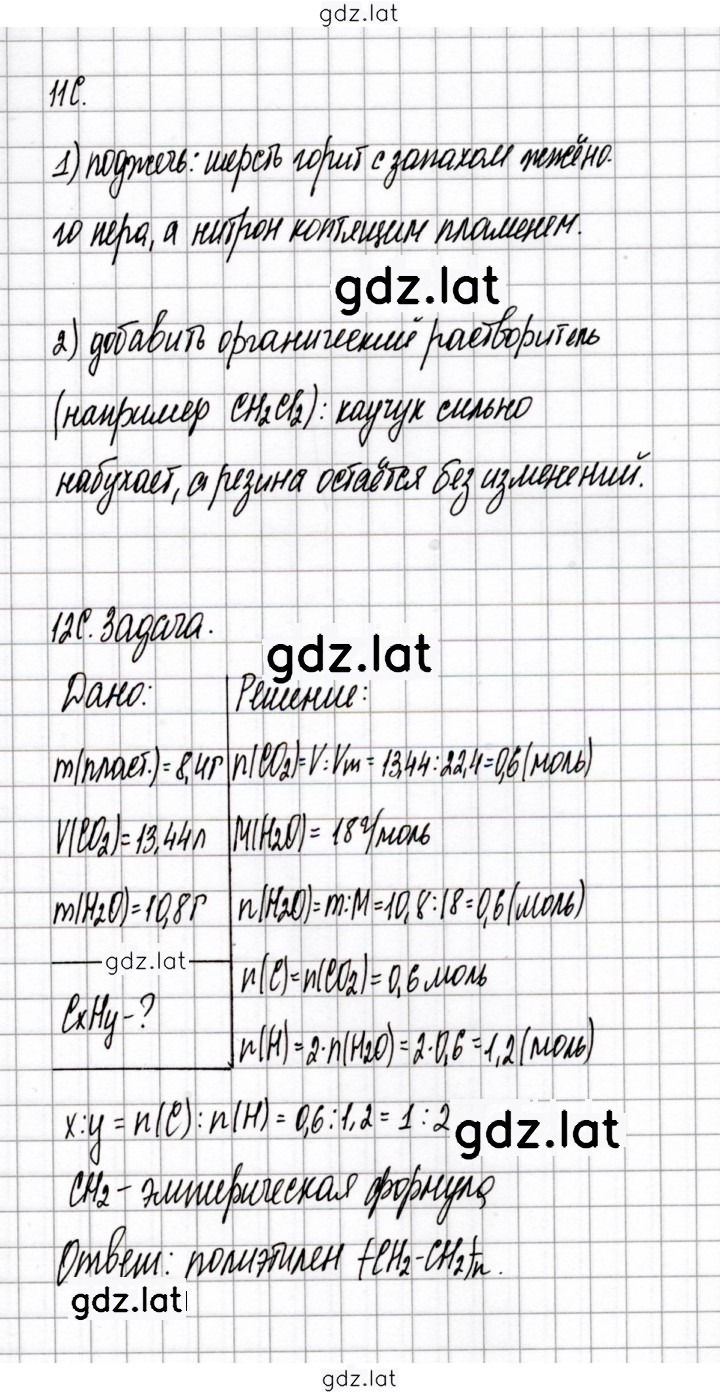 gdz.lat
11С.
1) поджечь: шерсть горит с запахом жжёно-
го пера, а нитрон коптящим пламенем.
gdz.lat
2) добавить органический растворитель
(например CH₂Cl₂): каучук сильно
набухает, а резина остаётся без изменений.
12С. Задача.
gdz.lat
Дано:
Решение:
m(пласт.)=8,4г
n(CO₂)=V:Vm=13,44:22,4=0,6(моль)
V(CO₂)=13,44л
M(H₂O)=18г/моль
m(H₂O)=10,8г
n(H₂O)=m:M=10,8:18=0,6(моль)
gdz.lat
n(C)=n(CO₂)=0,6моль
CxHy-?
n(H)=2·n(H₂O)=2·0,6=1,2(моль)
x:y=n(C):n(H)=0,6:1,2=1:2
gdz.lat
CH₂-эмпирическая формула
Ответ: полиэтилен [-CH₂-CH₂-]n.
gdz.lat
gdz.lat